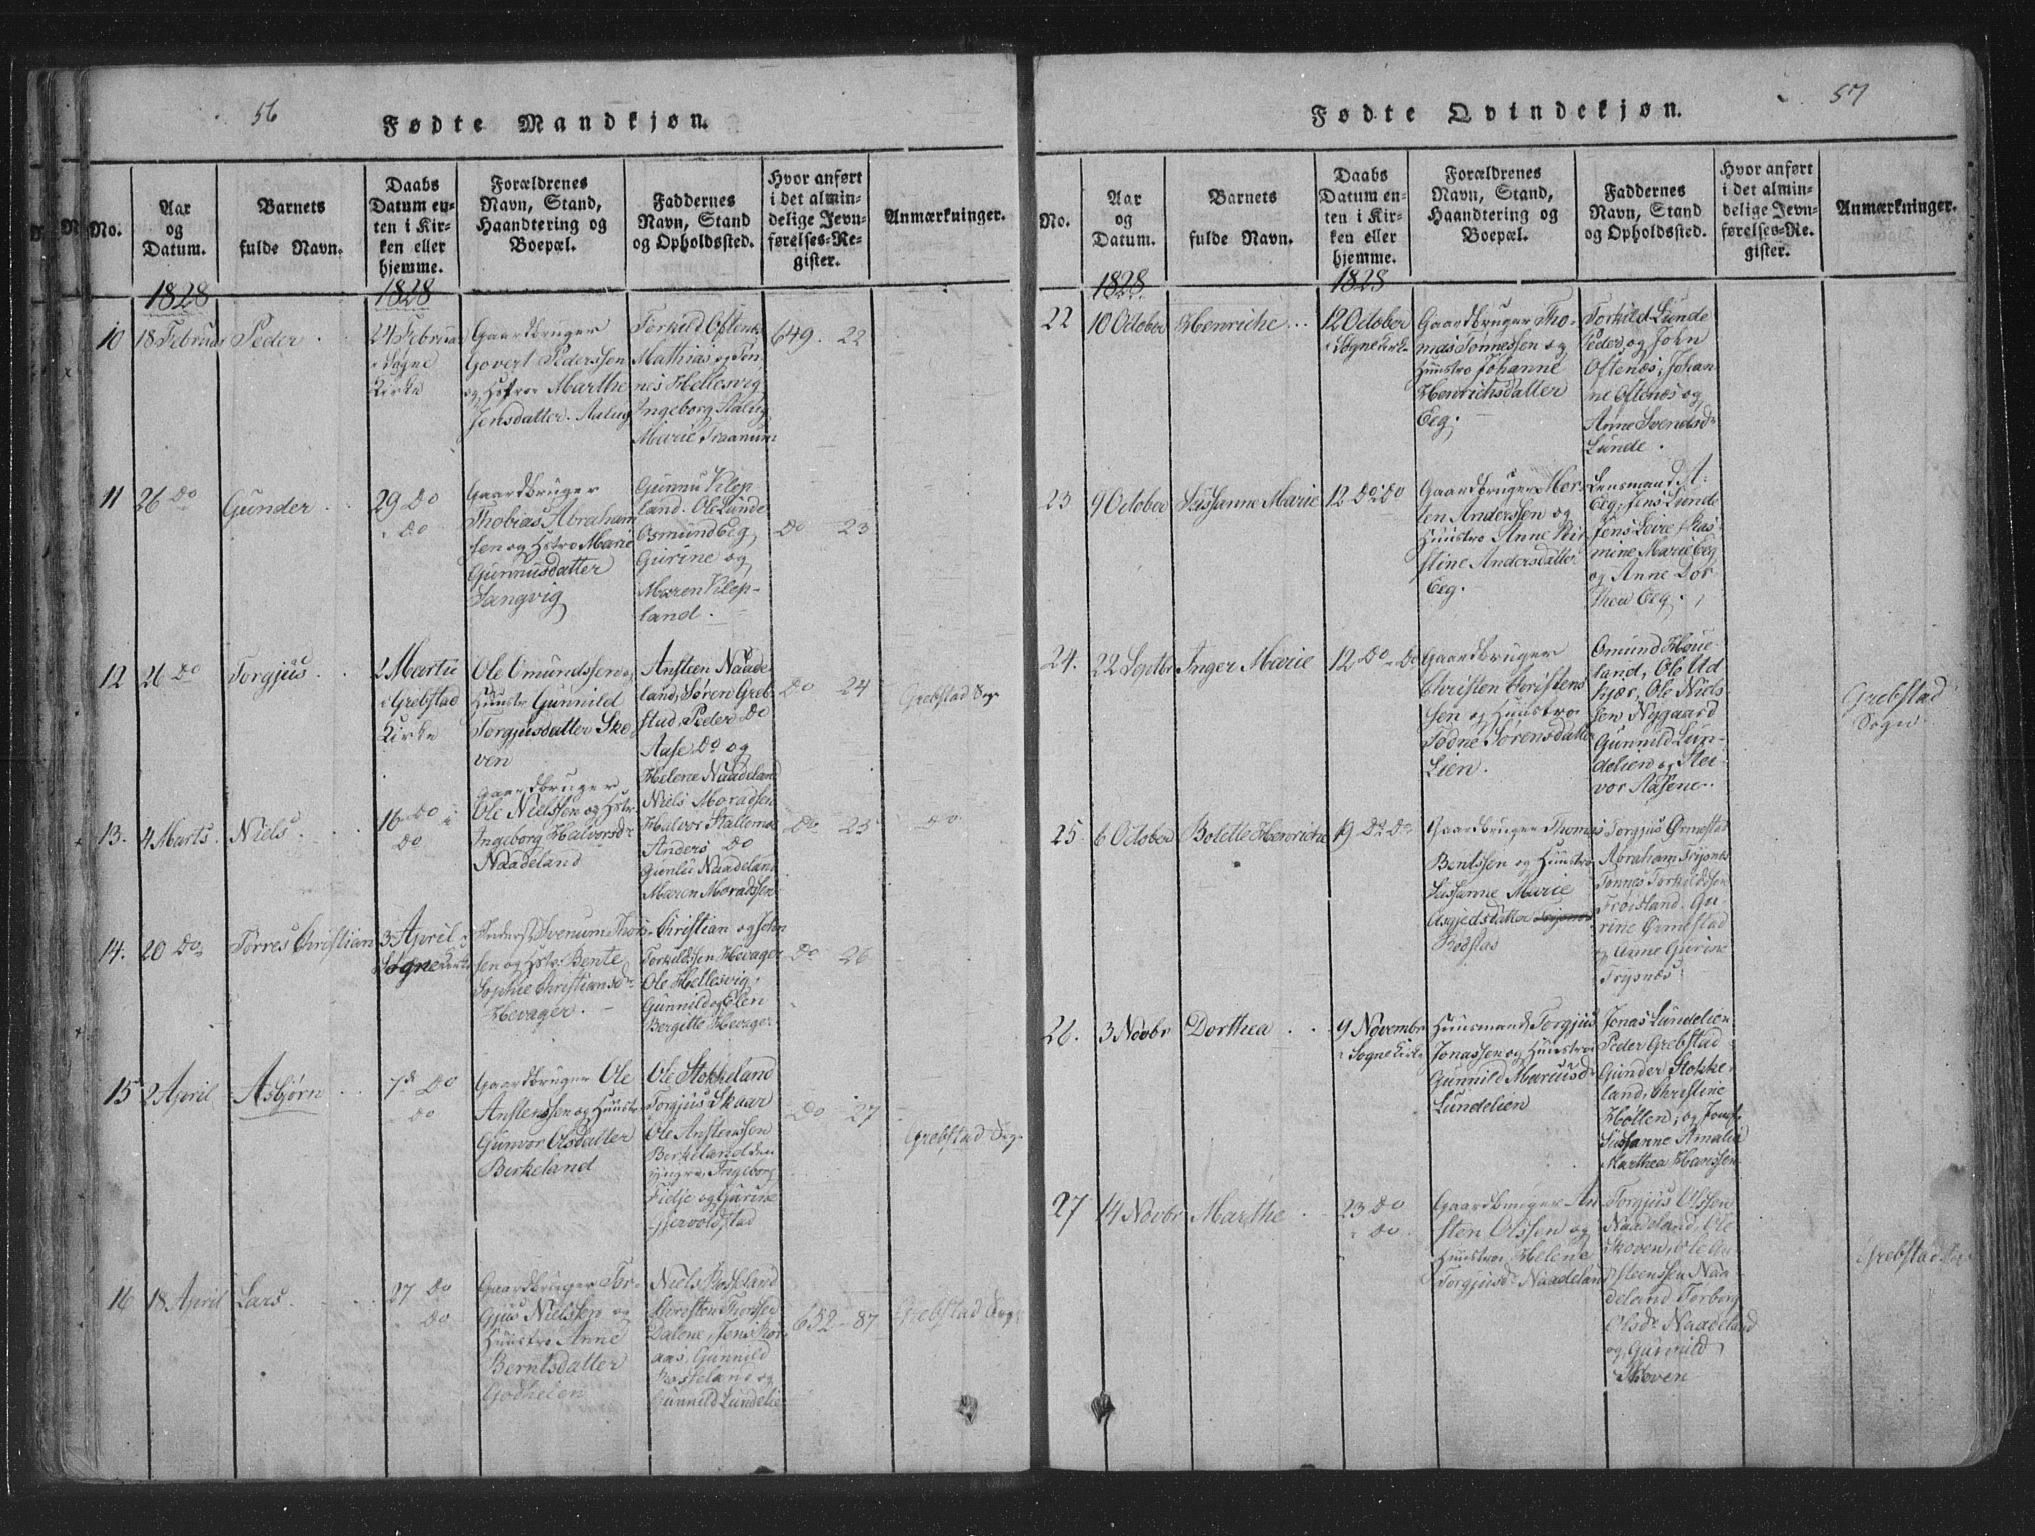 56
Fødte Mandkjøn.
No.
Aar
og
Datum.
Barnets
fulde Navn.
Daabs
Datum en-
ten i Kir-
ken eller
hjemme.
Forældrenes
Navn, Stand,
Haandtering og
Boepæl.
Faddernes
Navn, Stand
og Opholdssted.
Hvor anført
i det almin-
delige Jevn-
førelses-Re-
gister.
Anmærkninger.
1828
1828
10
18 Februar
Peder
24 Februar
i Sogne
Kirke
Gaardbruger
Govert Pederssen
og Hstroe Marthe
Jensdatter.
Torkild Oftenæs
Mathias og Tøn-
nes Hellesvig
Ingeborg
Marie
649. 22
11
26 Do
Gunder
29 Do
Do
Gaardbruger
Thobias Abraham
sen og Hstro Marie
Gunnusdatter
Langvig
Gunnu Klep-
land. Ole Lunde
Osmund Eeg
Gurine og
Maren Klep-
land.
Do 23
12
26 Do
Torgjus
2 Martii
i Grebstad
Kirke
Ole Omundssen og
Huustr Gunnild
Torgjusdatter Sko
ven
Ansteen Naade
land, Søren Greb-
stad, Peder Do
Aase Do og
Helene Naadeland
Do 24
Grebstad Sog
13.
4 Marts.
Niels
16 Do i
Do
Gaardbruger
Ole Nielssen og Hstr
Ingeborg Halvorsdr
Naadeland
Niels Moradsen
Halvor Stallemoe
Anders Do
Gunlu Naadeland
Maren Moradssen
Do 25
Do
14.
20 Do
Torres Christian
3 April
Sogne Kirke
sen og Hstr. Bente
Sophie Christiansdr
Hevager.
Christian og John
Torkildssen Hevager
Ole Hellesvig,
Gunnild og Elen
Bergitte Hevager
Do 26
15
2 April
Asbjørn
7d Do
Do
Gaardbruger Ole
Anstenssen og Huustr
Gunvor Olsdatter
Birkeland
Ole Stokkeland
Torgjus Skaar
Ole Anstenssen
Birkeland den
yngre, Ingeborg
Fidje og Gurine
Do 27
Grebstad Sog
16
18 April
Lars
27 Do
Do
Gaardbruger Tor-
gjus Nielsen og
Huustro Anne
Berntsdatter
Niels Roskeland
Dalene, Jens
aas, Gunnild
Roskeland og
Gunnild Lundelie
652 - 87
Grebstad Sog
57
Fødte Qvindekjøn.
No.
Aar
og
Datum.
Barnets
fulde Navn.
Daabs
Datum en-
ten i Kir-
ken eller
hjemme.
Forældrenes
Navn, Stand,
Haandtering og
Boepæl.
Faddernes
Navn, Stand
og Opholdssted.
Hvor anført
i det almin-
delige Jevn-
førelses-Re-
gister.
Anmærkninger.
1828
1828
22
10 October
Henriche
12 October
i Sogne Kirke
Gaardbruger Tho-
mas Tønnessen og
Huustro Johanne
Henrichsdatter
Eeg.
Torkild Lunde
Peder og John
Oftenæs, Johan-
ne Oftenæs og
Anne Svendsdr
Lunde.
23
9 October
Susanne Marie
12 Do Do
Gaardbruger Mor-
ten Anderssen og
Huustro Anne Kir
stine Andersdatter
Eeg.
Lensmand A.
Eeg, Jens Lunde
Jens Leire, Kas-
mine Marie Eeg
og Anne Dor
thea Eeg.
24.
22 Septbr
Inger Marie
12 Do - Do
Gaardbruger
Christen Christens
sen og Huustroe
Todne Sørensdatter
Lien.
Omund Houe
land, Ole Ud
kjær, Ole Niels
sen Nygaard
Gunnild Lun-
delien og Stei-
vor Aasene.
Grebstad
Sogn
25
6 October
Bolette Henriche
19 Do Do
Gaardbruger Thomas
Bentssen og Huustro
Susanne Marie
Asgjedsdatter
Bodstad
Torgjus Ørmestad
Abraham Trysnes
Tønnes Torkildssen
Trøisland. Gu-
rine Ørmestad
og Anne Gurine
Trysnæs
26.
3 Novbr
Dorthea
9 Novembr
i Sogne Kirke
Huusmand Torgjus
Jonassen og Huustroe
Gunnild Marcusd.
Lundelien
Jonas Lundelien
Peder Grebstad
Gunder Stokke-
land, Christine
Holten, og Jomf.
Susanne Amalia
Marthea Hanssen
27
14 Novbr
Marthe
23 Do
Do
Gaardbruger An
sten Olssen og
Huustroe Helene
Torgjusdr Naadeland
Torgjus Olssen
Naadeland, Ole
Skoven, Ole Gu-
steenssen Naa-
deland Torborg
Olsdr Naadeland
og Gunnild
Skoven
Grebstad